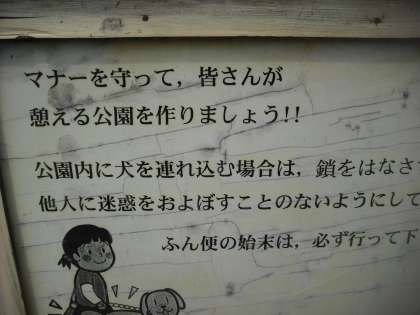 マナーを守って，皆さんが
憩える公園を作りましょう!!
公園内に犬を連れ込む場合は，鎖をはなさ
他人に迷惑をおよぼすことのないようにして
ふん便の始末は，必ず行って下